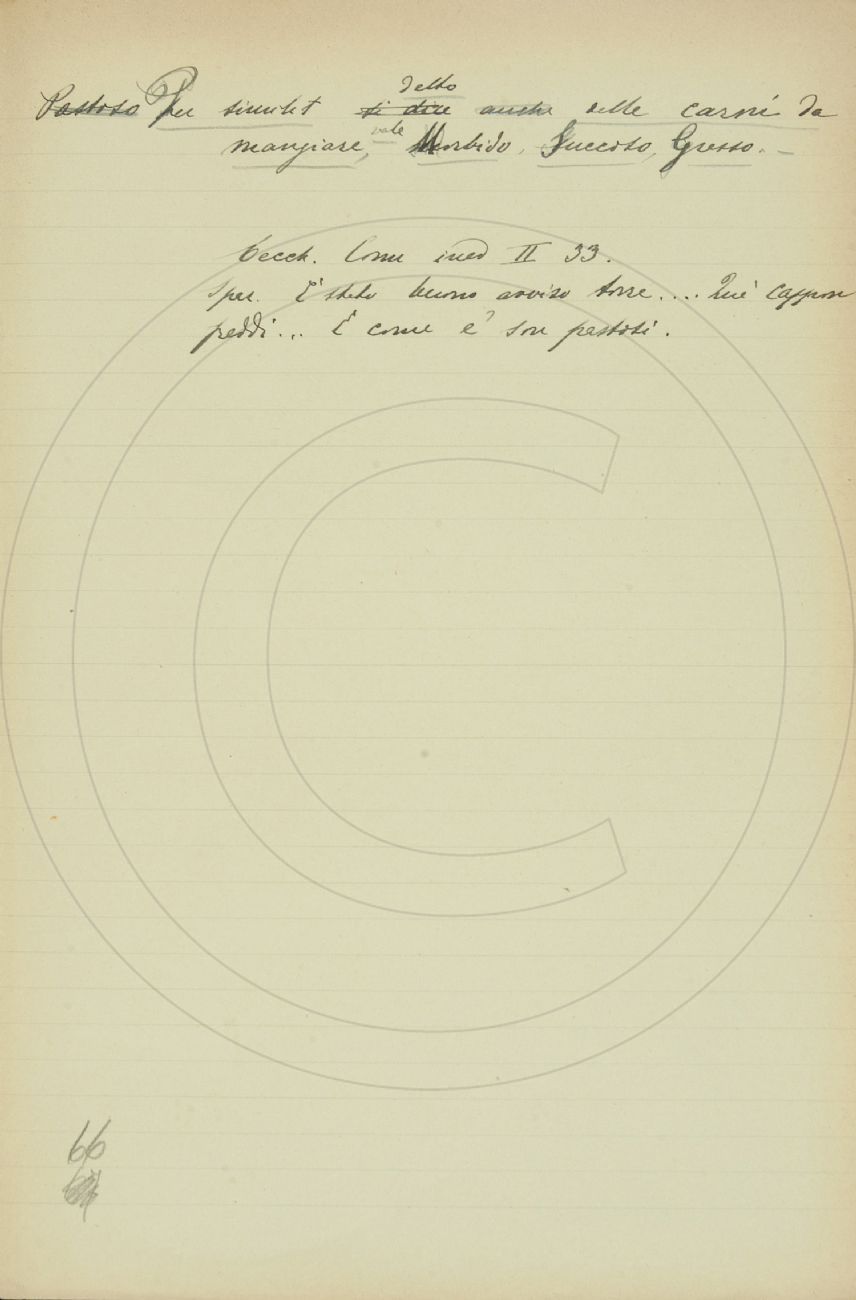 Pastoso Per similit si dice detto anche delle carni da
mangiare, vale Morbido, Succoso, Grasso. –
Cecch. Com ined II 33.
Sper. È stato buono avviso torre.... Que' cappon
freddi... E come e' son pastosi.
66